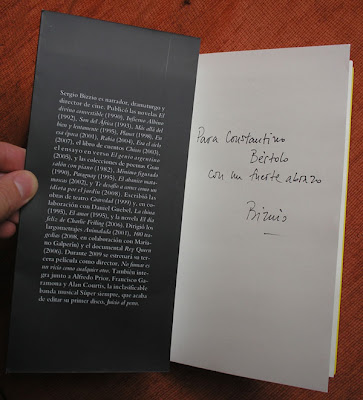 Sergio Bizzio es narrador, dramaturgo y
director de cine. Publicó las novelas El
divino convertible (1990), Infierno Albino
(1992), Son del África (1993), Más allá del
bien y lentamente (1995), Planet (1998), En
esa época (2001), Rabia (2004), Era el cielo
(2007), el libro de cuentos Chicos (2003),
el ensayo en verso El genio argentino
(2005), y las colecciones de poemas Gran
salón con piano (1982), Mínimo figurado
(1990), Paraguay (1995), El abanico mata-
moscas (2002), y Te desafío a correr como un
idiota por el jardín (2008). Escribió las
obras de teatro Gravedad (1999) y, en co-
laboración con Daniel Guebel, La china
(1995), El amor (1995), y la novela El día
feliz de Charlie Feiling (2006). Dirigió los
largometrajes Animalada (2001), 100 tra-
gedias (2008, en colaboración con Maria-
no Galperín) y el documental Rey Queen
(2006). Durante 2009 se estrenará su ter-
cera película como director, No fumar es
un vicio como cualquier otro. También inte-
gra junto a Alfredo Prior, Francisco Ga-
ramona y Alan Courtis, la inclasificable
banda musical Súper siempre, que acaba
de editar su primer disco, Juicio al perro.
Para Constantino
Bértolo
con un fuerte abrazo
Bizzio